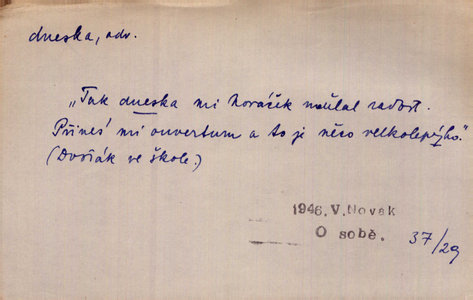 dneska, adv.
„Tak dneska mi Horáček udělal radost.
Přines' mi ouverturu a to je něco velkolepýho."
(Dvořák ve škole.)
1946. V. Novák
O sobě. 37/29